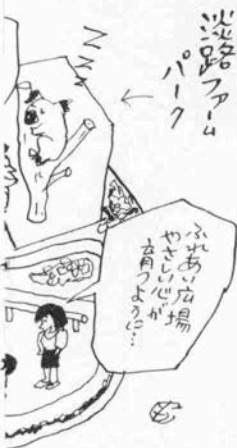 淡路ファーム
パーク
ZZZ
ふれあい広場
やさしい心が
育つように…